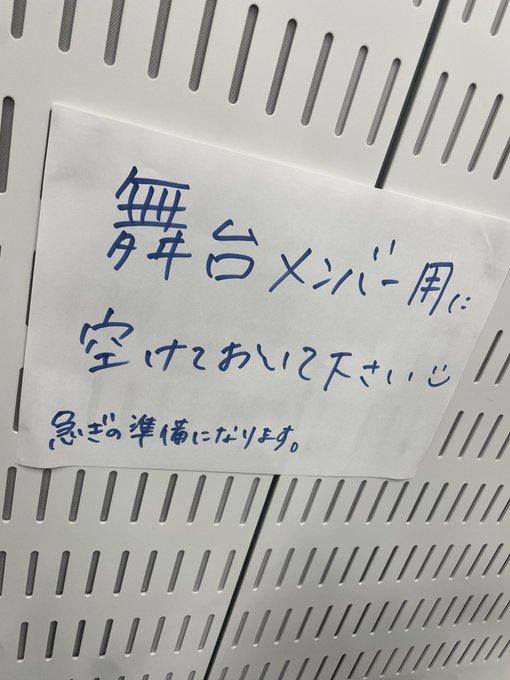 舞台メンバー用に
空けておいて下さい
急ぎの準備になります。